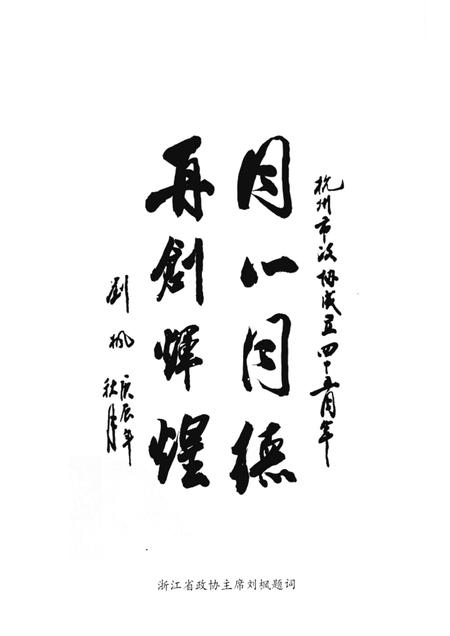 杭州市政协成立四十五周年
同心同德
再創輝煌
劉枫
庚辰年
秋月
浙江省政协主席刘枫题词